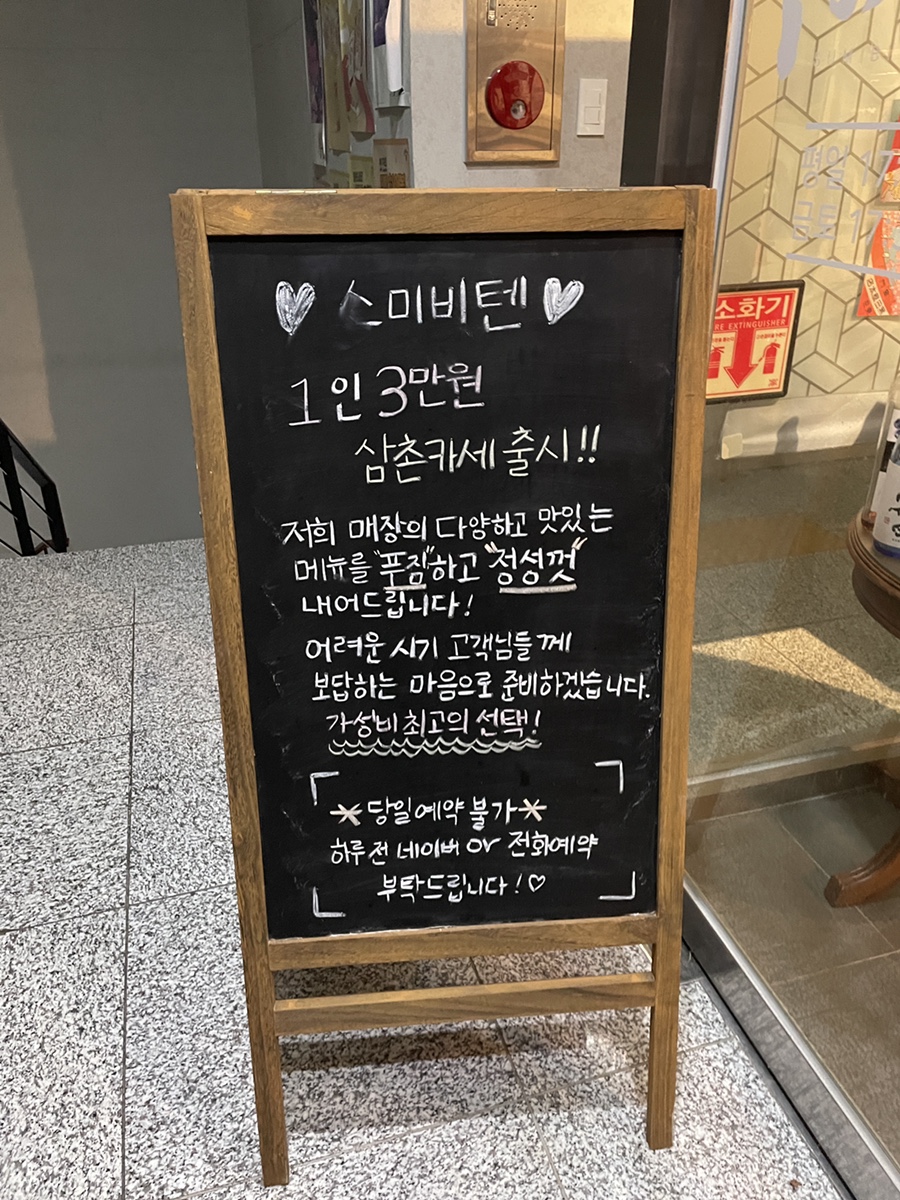 스미비텐
1인 3만원
삼촌카세 출시!!
저희 매장의 다양하고 맛있는
메뉴를 "푸짐"하고 "정성껏"
내어드립니다!
어려운 시기 고객님들께
보답하는 마음으로 준비하겠습니다.
가성비 최고의 선택!
*당일예약 불가*
하루 전 네이버 or 전화예약
부탁드립니다!♡
평일 17
금토 17
소화기
RE EXTINGUISHER